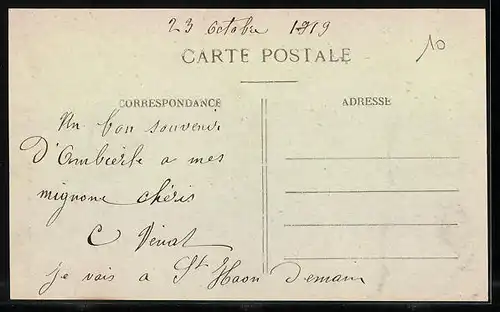 23 octobre 1919
10
CARTE POSTALE
CORRESPONDANCE
ADRESSE
Un bon souvenir
D'Ambierle a mes
mignons chéris
C Dénat
je vais a St Haon Demain